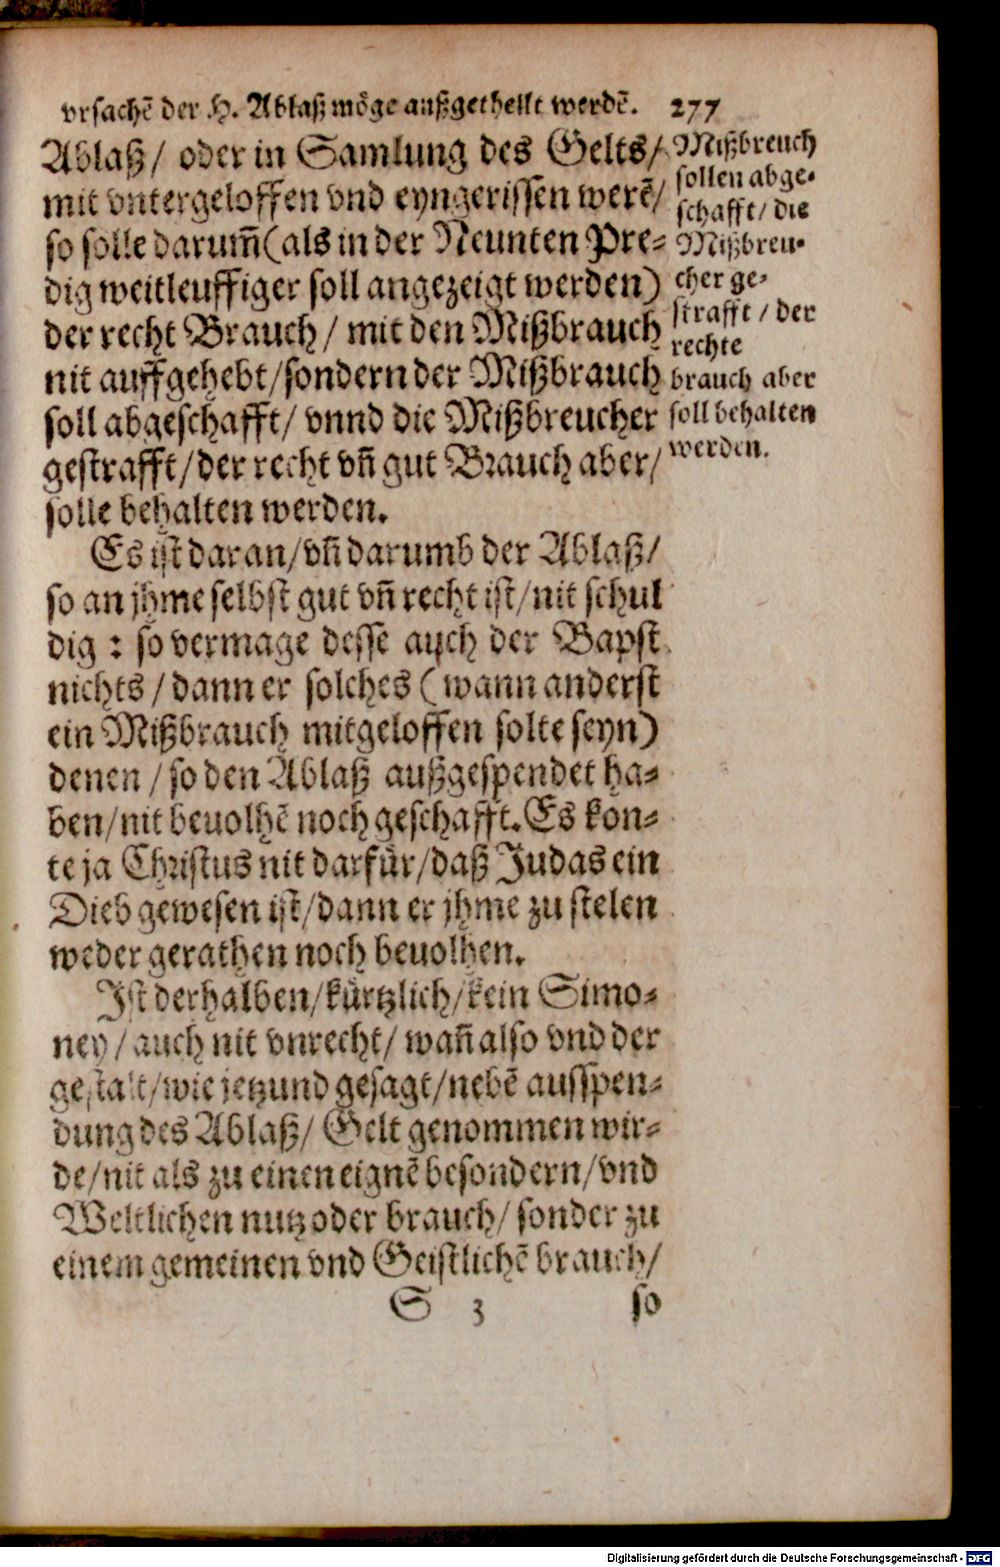 vrsachẽ der H. Ablaß möge außgetheilt werdẽ. 277
Ablaß/ oder in Samlung des Gelts/
mit vntergeloffen vnd eyngerissen werẽ/
so solle darum̃ (als in der Neunten Pre-
dig weitleuffiger soll angezeigt werden)
der recht Brauch / mit den Mißbrauch
nit auffgehebt/ sondern der Mißbrauch
soll abgeschafft/ vnnd die Mißbreucher
gestrafft/ der recht vñ gut Brauch aber/
solle behalten werden.
Mißbreuch
sollen abge-
schafft/ die
Mißbreu-
cher ge-
strafft / der
rechte
brauch aber
soll behalten
werden.
Es ist daran/ vñ darumb der Ablaß/
so an jhme selbst gut vñ recht ist/ nit schul
dig : so vermage desse auch der Bapst
nichts / dann er solches (wann anderst
ein Mißbrauch mitgeloffen solte seyn)
denen / so den Ablaß außgespendet ha-
ben/ nit beuolhẽ noch geschafft. Es kon-
te ja Christus nit darfür/ daß Judas ein
Dieb gewesen ist/ dann er jhme zu stelen
weder gerathen noch beuolhen.
Ist derhalben/ kürtzlich/ kein Simo-
ney / auch nit vnrecht/ wañ also vnd der
gestalt/ wie jetzund gesagt/ nebẽ ausspen-
dung des Ablaß/ Gelt genommen wir-
de/ nit als zu einen eignẽ besondern/ vnd
Weltlichen nutz oder brauch/ sonder zu
einem gemeinen vnd Geistlichẽ brauch/
S 3 so
Digitalisierung gefördert durch die Deutsche Forschungsgemeinschaft - DFG